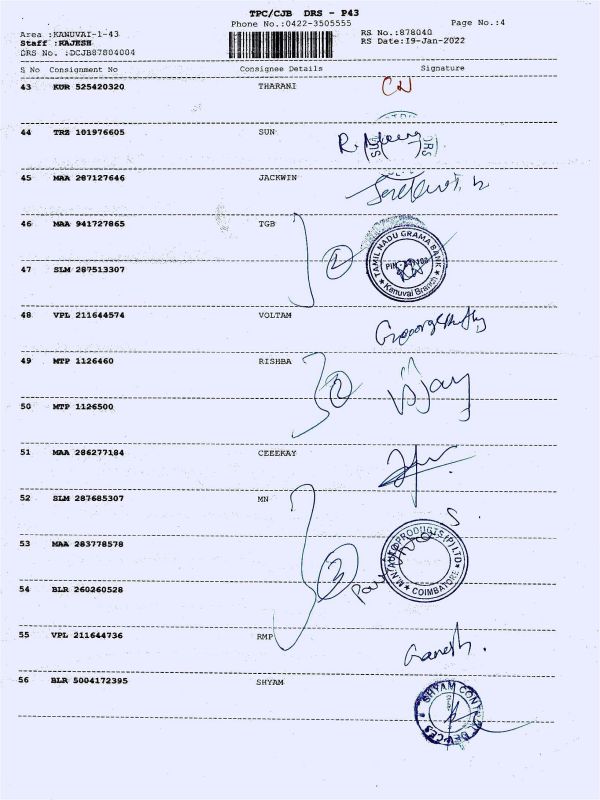 TPC/CJB DRS - P43
Phone No.:0422-3505555 Page No.:4
Area :KANUVAI-1-43 RS No.:878040
Staff :RAJESH RS Date:19-Jan-2022
DRS No. :DCJB87804004
S No Consignment No Consignee Details Signature
43 KUR 525420320 THARANI
44 TRZ 101976605 SUN
DRS DRS
45 MAA 287127646 JACKWIN
46 MAA 941727865 TGB
2 TAMIL NADU GRAMA BANK
PIN
Kanuvai Branch
47 SLM 287513307
48 VPL 211644574 VOLTAM
49 MTP 1126460 RISHBA
2 Vijay
50 MTP 1126500
51 MAA 286277184 CEEEKAY
52 SLM 287685307 MN
53 MAA 283778578
3 PRODUCTS (P) LTD
COIMBATORE
54 BLR 260260528
55 VPL 211644736 RMP Ganesh.
56 BLR 5004172395 SHYAM
SHYAM CONTROL DEVICES